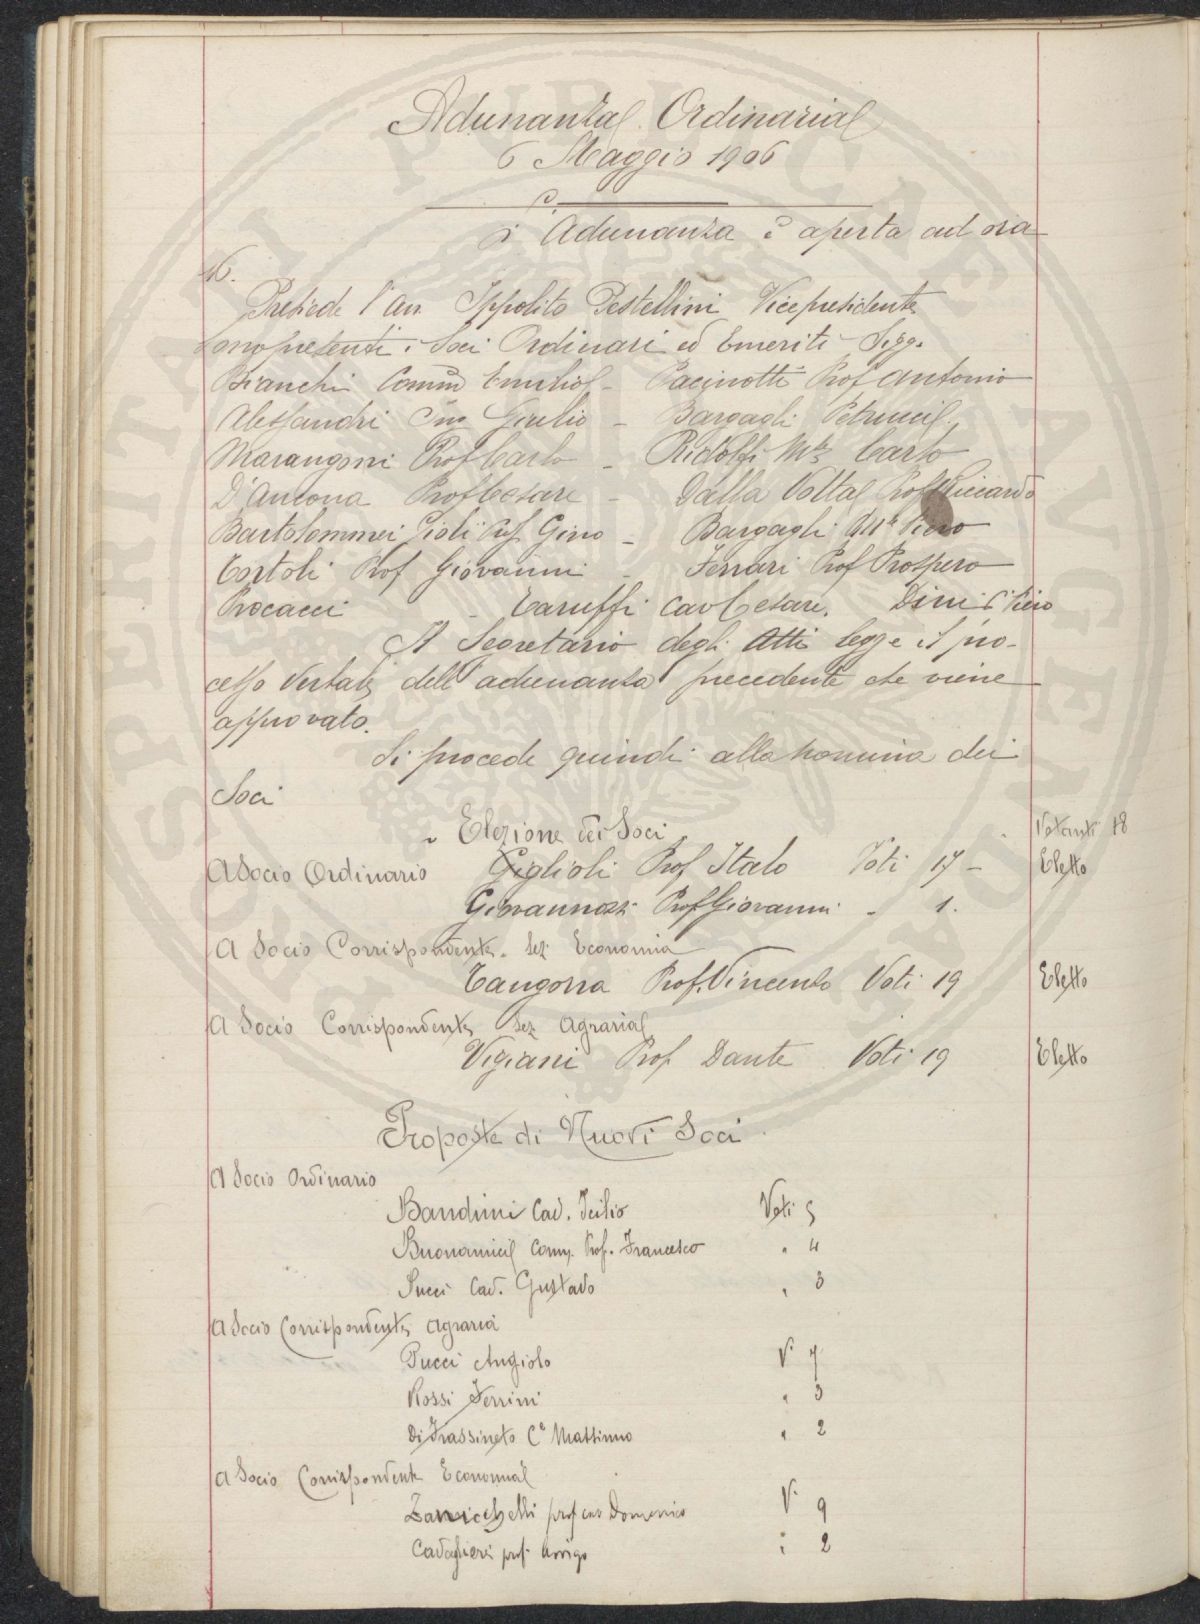 Adunanza Ordinaria
6 Maggio 1906
L'Adunanza è aperta ad ora
16.
Presiede l'avv. Ippolito Pestellini Vicepresidente
sono presenti i Soci Ordinari ed Emeriti Sigg.
Bianchi Comm Emilio - Pacinotti Prof Antonio
Alessandri Ing Giulio - Bargagli Petrucci
Marangoni Prof Carlo - Ridolfi Mse Carlo
D'Ancona Prof Cesare - Dalla Volta Prof Riccardo
Bartolommei Gioli Prof. Gino - Bargagli Piero
Tortoli Prof Giovanni - Ferrari Prof Prospero
Procacci - Taruffi Cav Cesare. Dini Piero
Il Segretario degli Atti legge il pro-
cesso Verbale dell'adunanza precedente che viene
approvato.
Si procede quindi alla nomina dei
Soci
Elezione dei Soci
Votanti 18
A Socio Ordinario Giglioli Prof Italo Voti 17 - Eletto
Giovannozzi Prof Giovanni " 1.
A Socio Corrispondente. Sez Economia
Tangorra Prof. Vincenzo Voti 19 Eletto
A Socio Corrispondente Sez Agraria
Vigiani Prof. Dante Voti 19 Eletto
Proposte di Nuovi Soci
A Socio Ordinario
Bandini Cav. Icilio Voti 5
Buonamici Comm. Prof. Francesco " 4
Succi Cav. Gustavo " 3
A Socio Corrispondente Agraria
Pucci Angiolo V. 7
Rossi Ferrini " 3
Di Frassineto Ce Massimo " 2
A Socio Corrispondente Economia
Zanichelli prof cav Domenico V. 9
Cavaglieri prof. Arrigo " 2